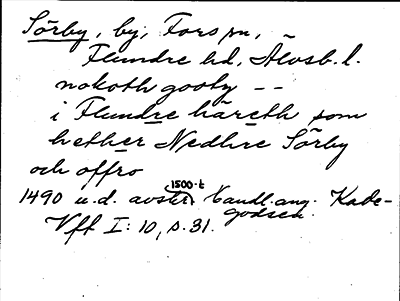 Sörby, by, Fors sn,
Flundre hd, Älvsb. l.
nokoth gooty --
i Flundre häreth som
hether Nedhre Sörby
och offro
1490 u.d. avskr. 1500-t. handl. ang. Kade-
godsen.
Vff I: 10, s. 31.